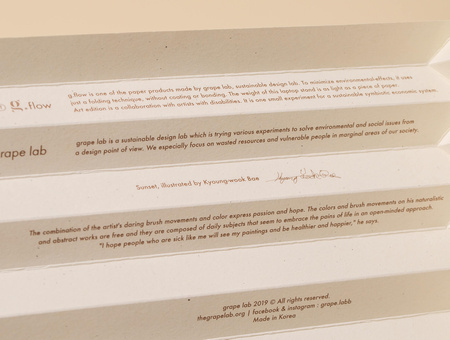 g.flow
g.flow is one of the paper products made by grape lab, sustainable design lab. To minimize environmental-effects, it uses
just a folding technique, without coating or bonding. The weight of this laptop stand is as light as a piece of paper.
Art edition is a collaboration with artists with disabilities. It is one small experiment for a sustainable symbiotic economic system.
rape lab
grape lab is a sustainable design lab which is trying various experiments to solve environmental and social issues from
a design point of view. We especially focus on wasted resources and vulnerable people in marginal areas of our society.
Sunset, illustrated by Kyoungwook Bae
The combination of the artist's daring brush movements and color express passion and hope. The colors and brush movements on his naturalistic
and abstract works are free and they are composed of daily subjects that seem to embrace the pains of life in an open-minded approach.
"I hope people who are sick like me will see my paintings and be healthier and happier," he says.
grape lab 2019 © All rights reserved.
thegrapelab.org | facebook & instagram : grape.labb
Made in Korea